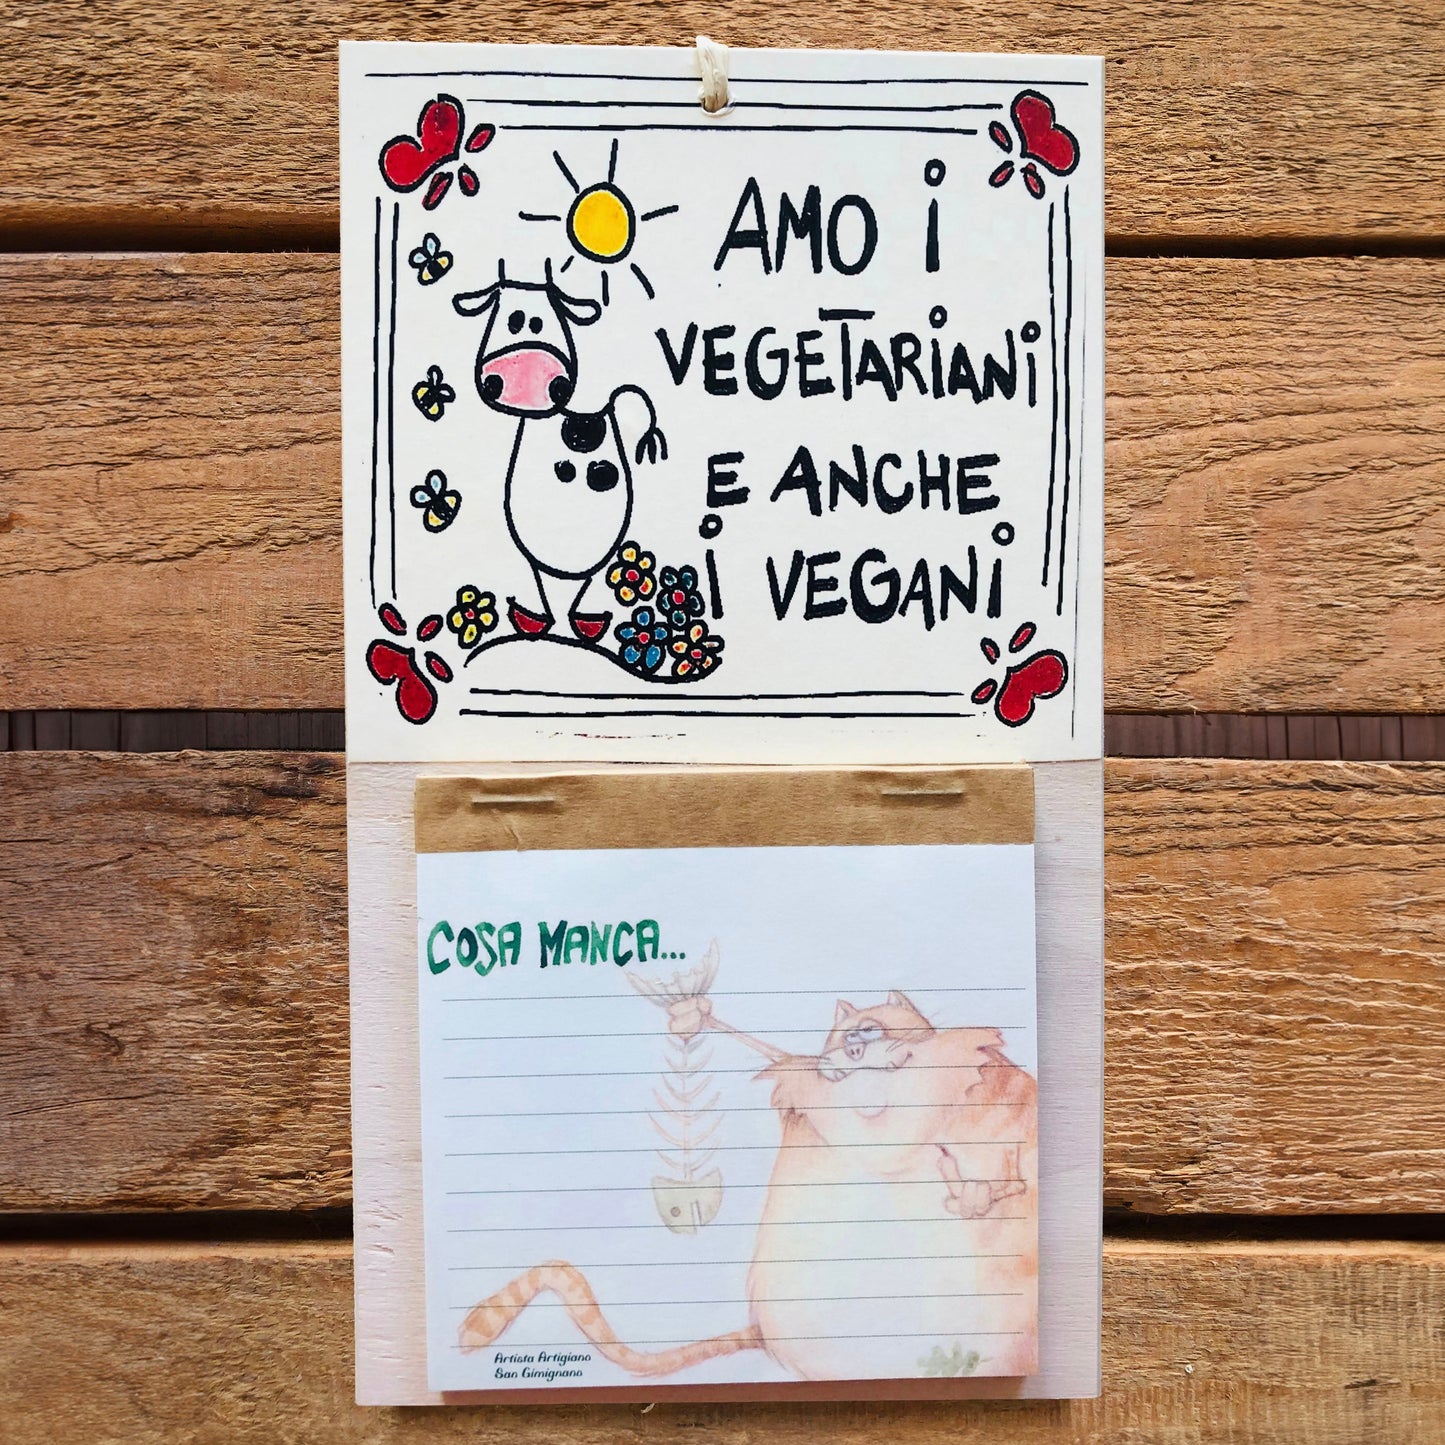 AMO i
VEGETARiANi
E ANCHE
i VEGANi
COSA MANCA...
Artista Artigiano
San Gimignano